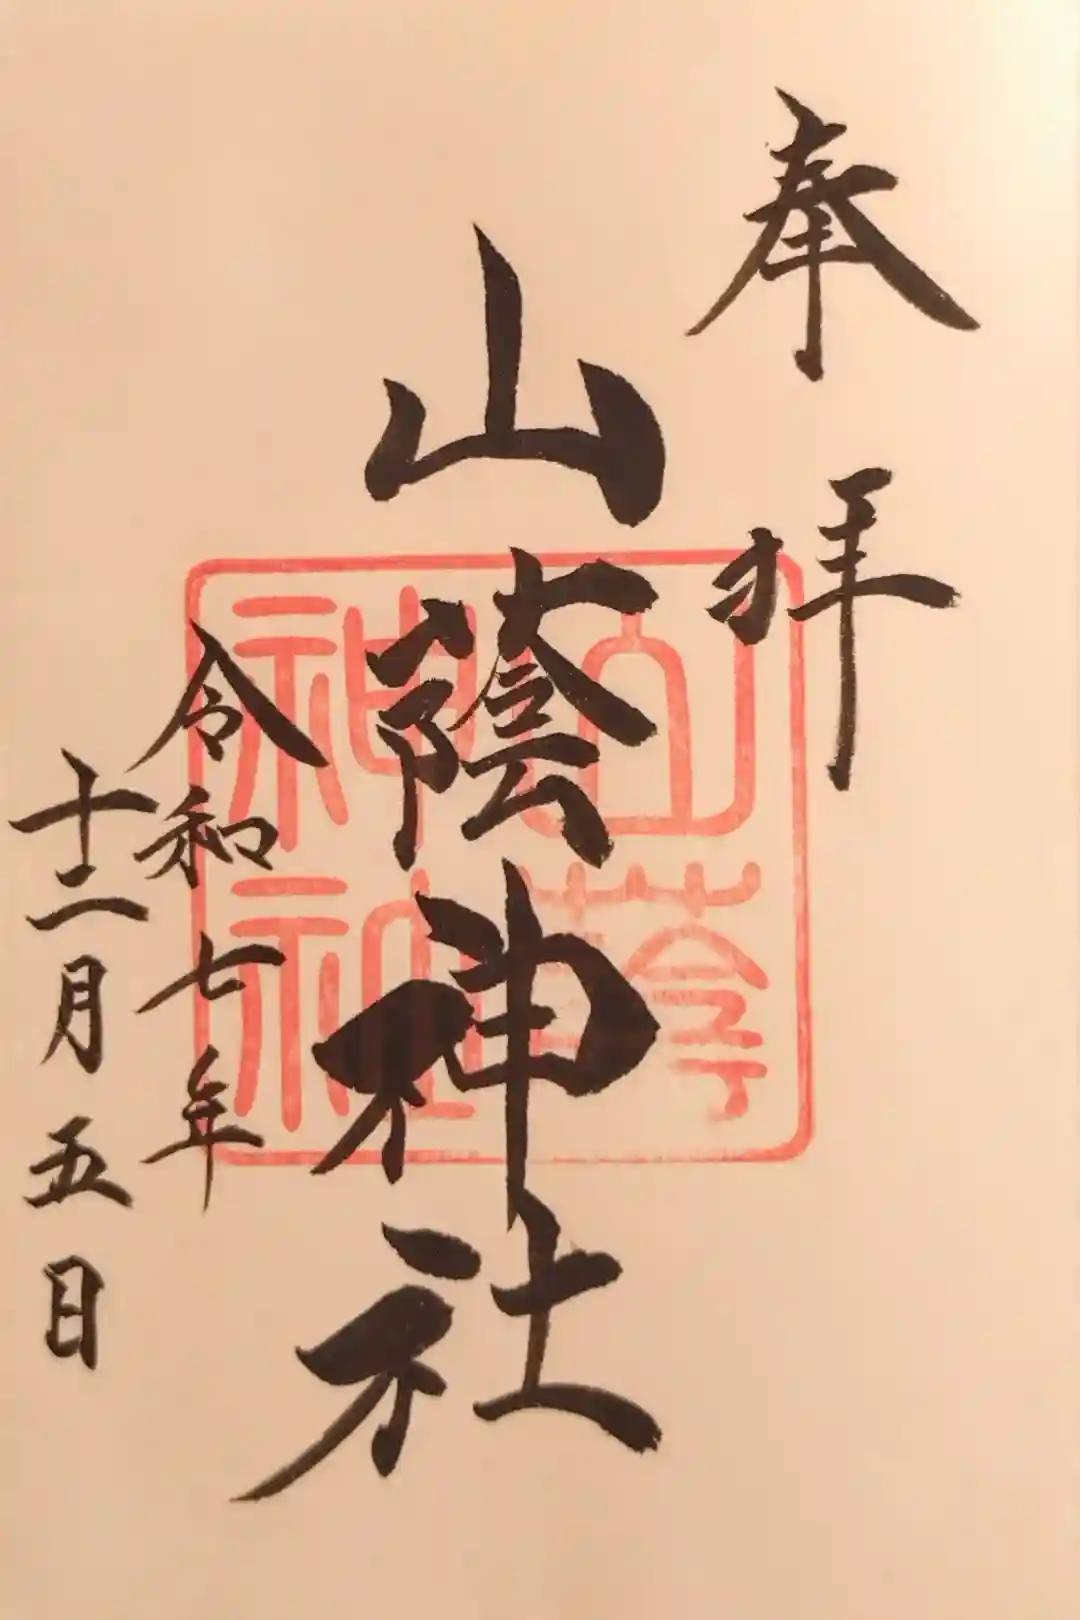 奉拝
山蔭神社
山蔭
神社
令和七年
十二月五日